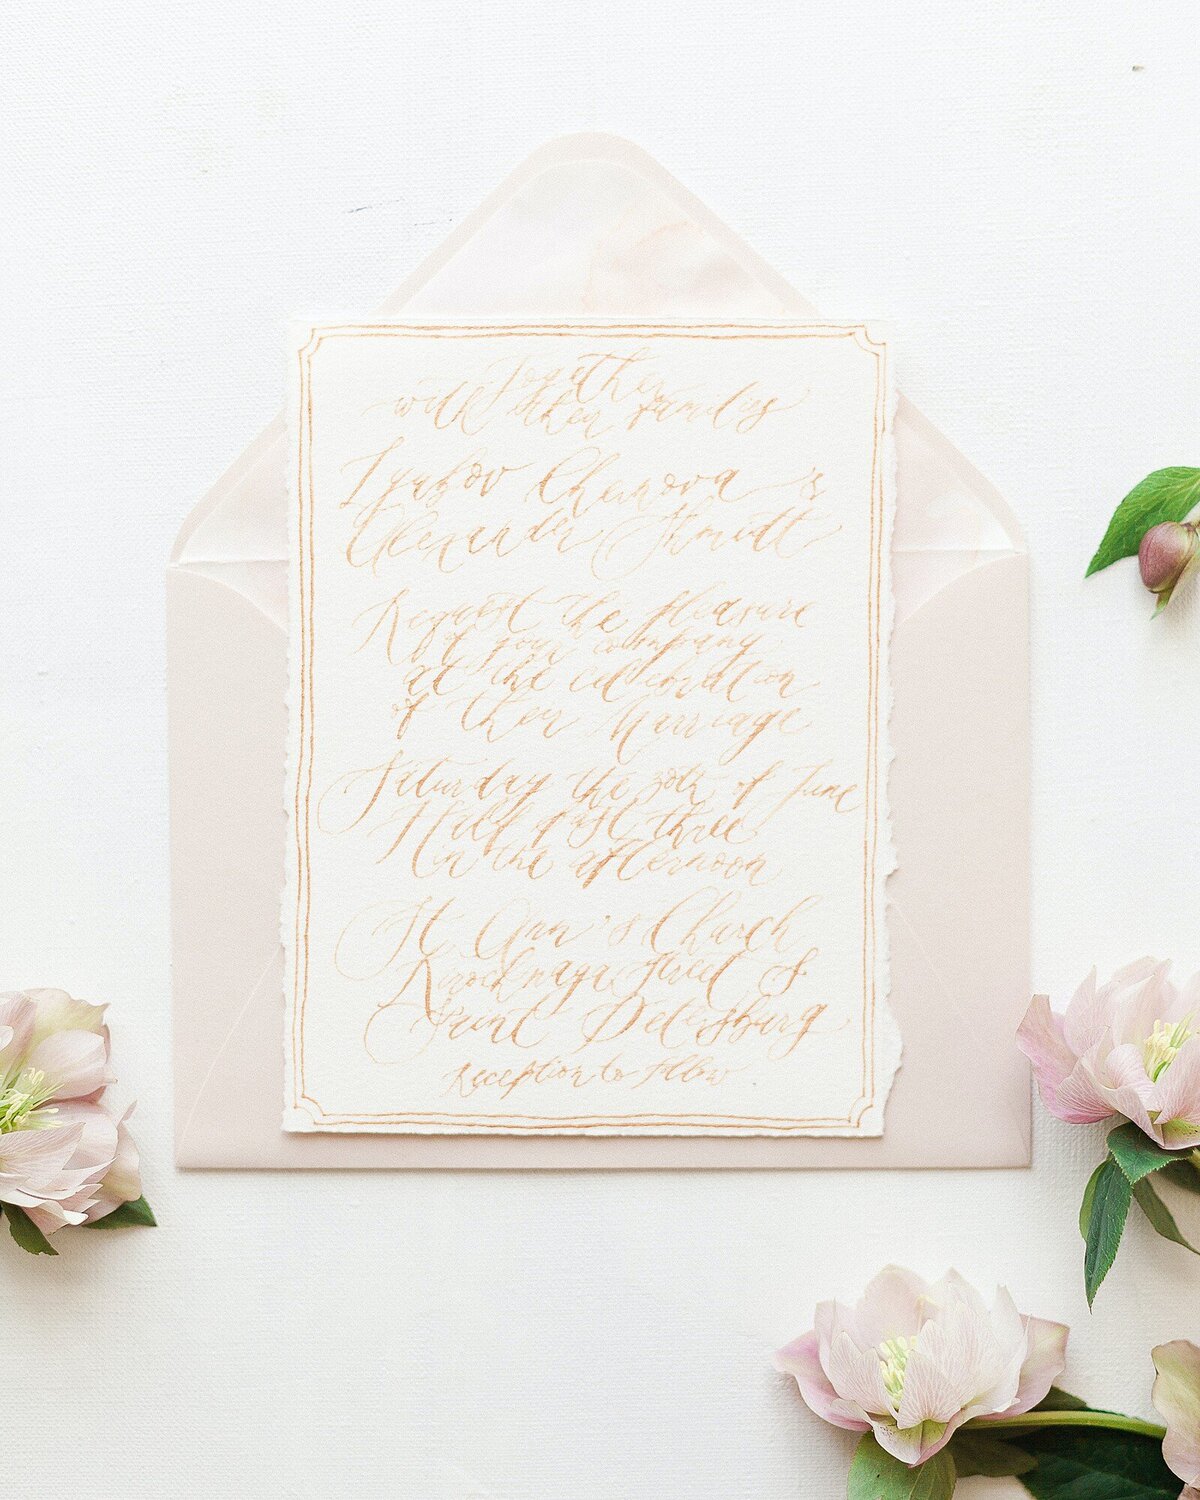 Together
with their families
Lyubov Chernova &
Alexander Shmidt
Request the pleasure
of your company
at the celebration
of their Marriage
Saturday the 30th of June
Half past three
in the afternoon
St Ann's Church
Kirochnaya Street 8
Saint Petersburg
Reception to follow